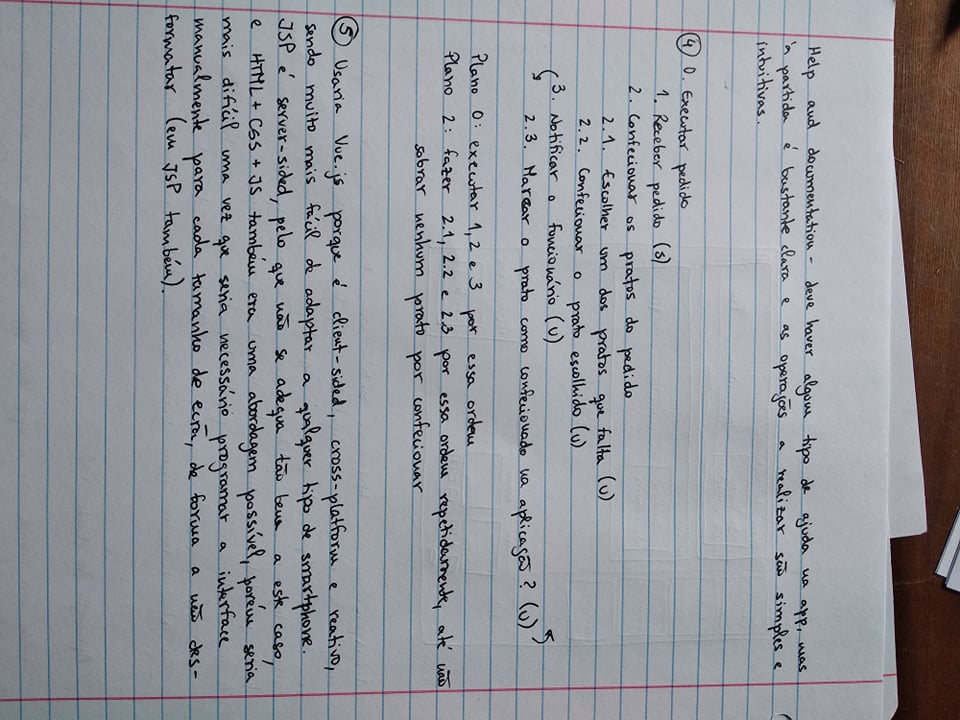 Help and documentation - deve haver algum tipo de ajuda na app, mas
à partida é bastante clara e as operações a realizar são simples e
intuitivas.
④ 0. Executar pedido
1. Receber pedido (S)
2. Confecionar os pratos do pedido
2.1. Escolher um dos pratos que falta (U)
2.2. Confecionar o prato escolhido (U)
3. Notificar o funcionário (U)
2.3. Marcar o prato como confecionado na aplicação? (U)
Plano 0: executar 1, 2 e 3 por essa ordem
Plano 2: fazer 2.1, 2.2 e 2.3 por essa ordem repetidamente, até não
sobrar nenhum prato por confecionar
⑤ Usaria Vue.js porque é client-sided, cross-platform e reativo,
sendo muito mais fácil de adaptar a qualquer tipo de smartphone.
JSP é server-sided, pelo que não se adequa tão bem a este caso,
e HTML + CSS + JS também era uma abordagem possível, porém seria
mais difícil uma vez que seria necessário programar a interface
manualmente para cada tamanho de ecrã, de forma a não des-
formatar (em JSP também).